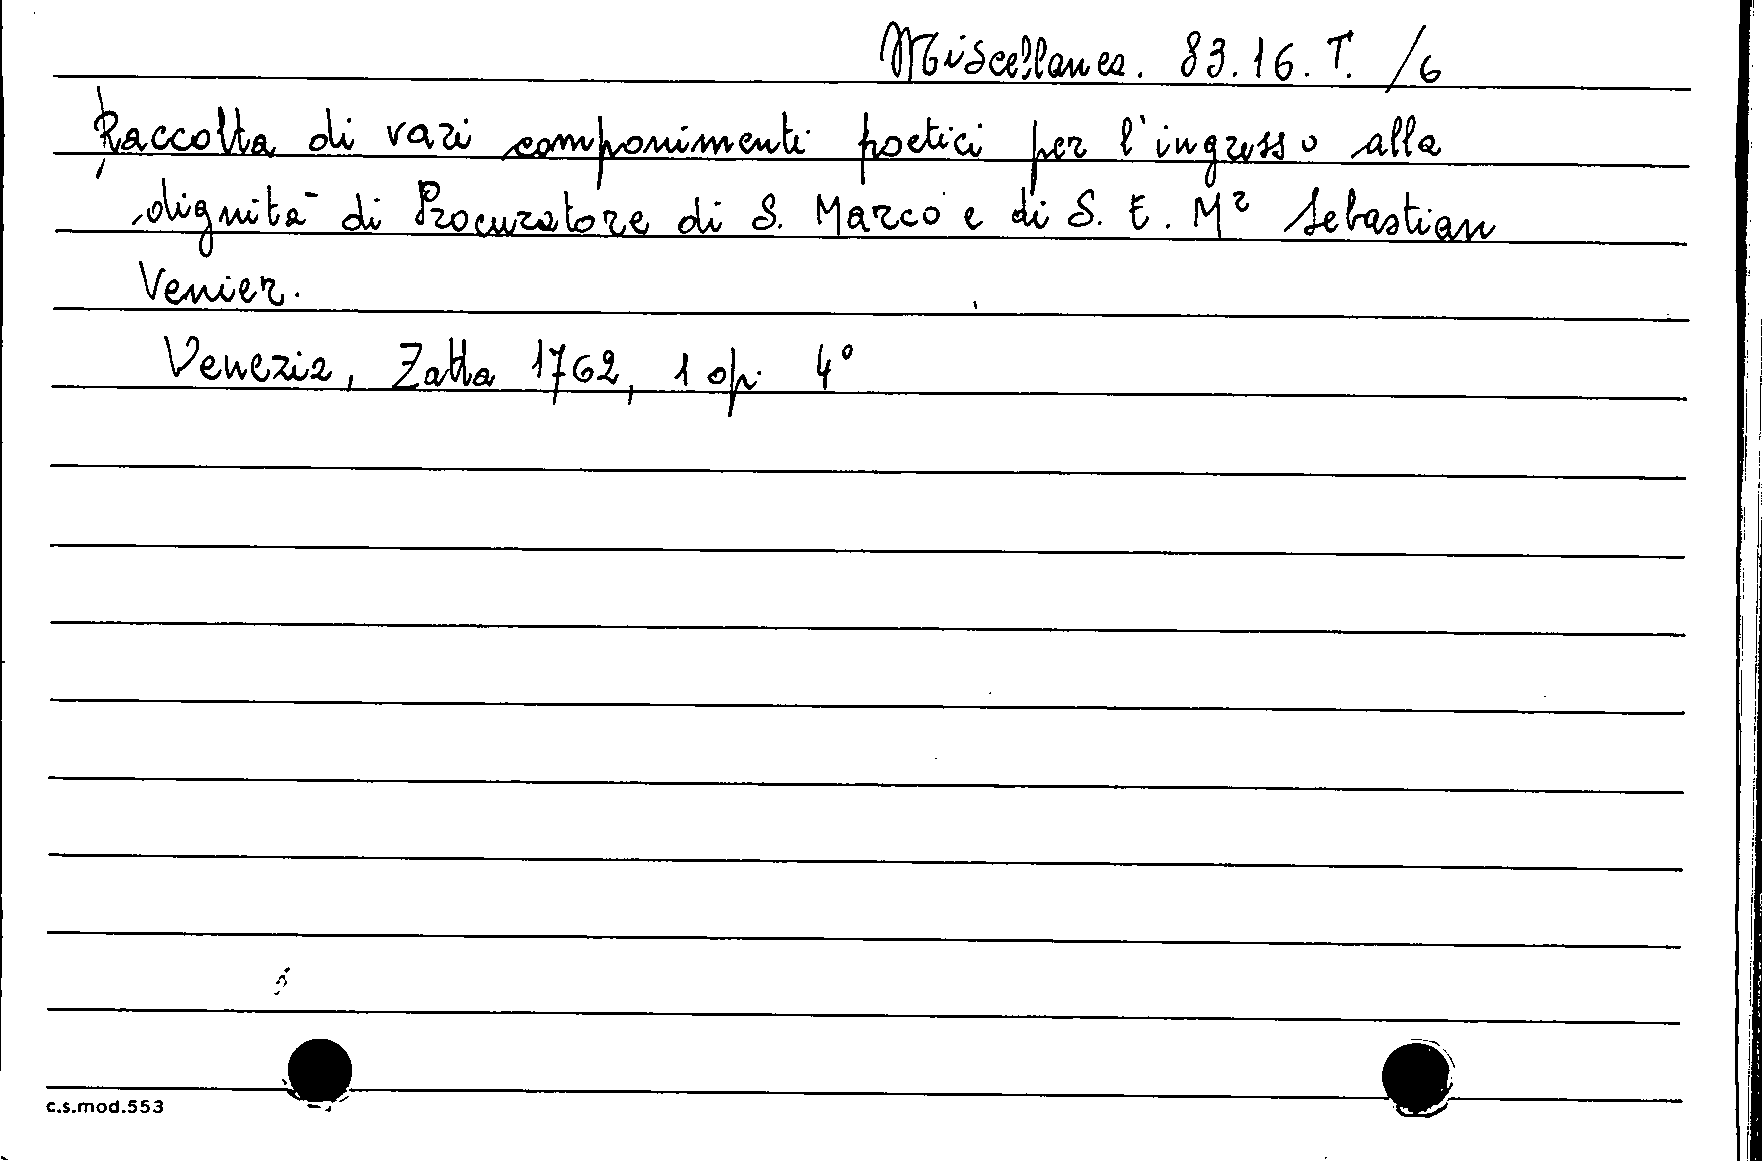 Miscellanea. 83.16.T. /6
Raccolta di vari componimenti poetici per l'ingresso alla
dignità di Procuratore di S. Marco e di S. E. Mr Sebastian
Venier.
Venezia, Zatta 1762, 1 op. 4°
c.s.mod.553